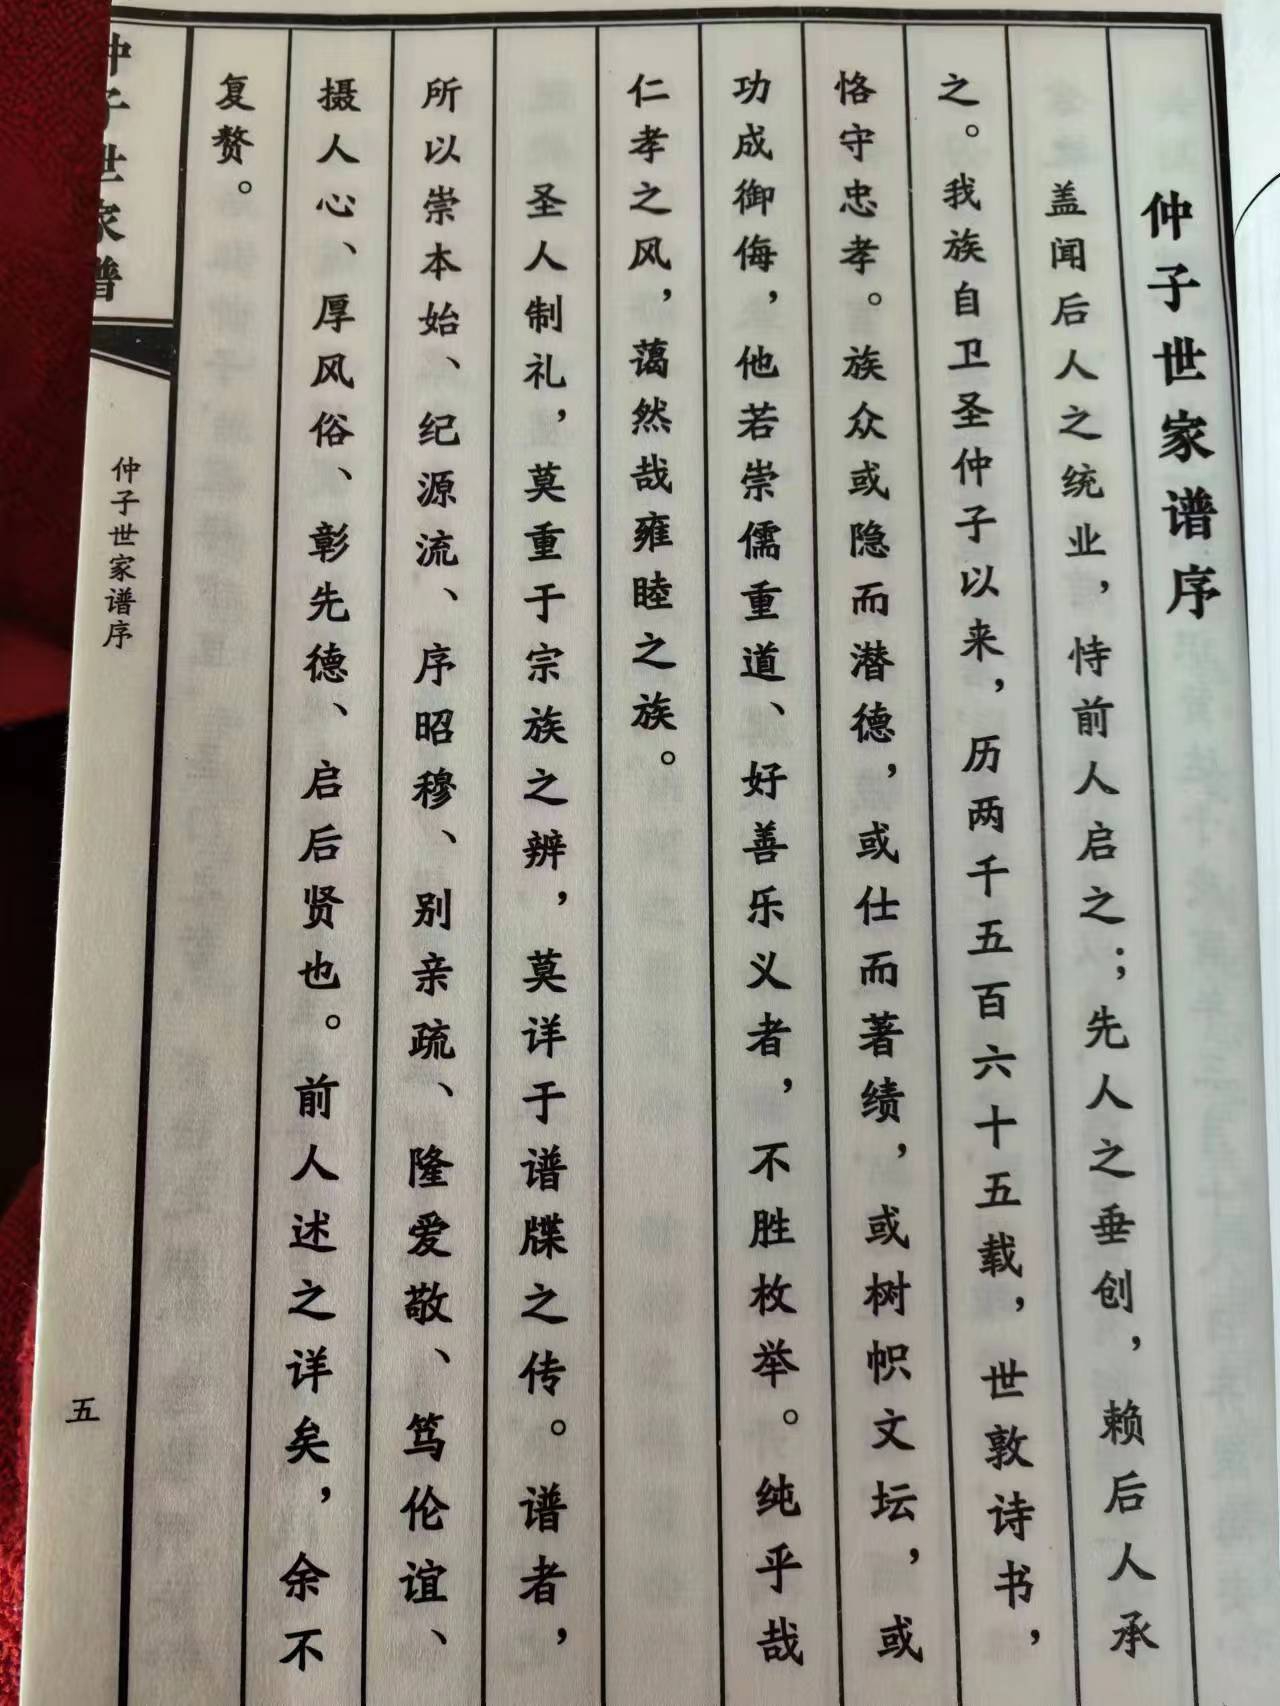 仲子世家谱序
盖闻后人之统业，恃前人启之；先人之垂创，赖后人承
之。我族自卫圣仲子以来，历两千五百六十五载，世敦诗书，
恪守忠孝。族众或隐而潜德，或仕而著绩，或树帜文坛，或
功成御侮，他若崇儒重道、好善乐义者，不胜枚举。纯乎哉
仁孝之风，蔼然哉雍睦之族。
圣人制礼，莫重于宗族之辨，莫详于谱牒之传。谱者，
所以崇本始、纪源流、序昭穆、别亲疏、隆爱敬、笃伦谊、
摄人心、厚风俗、彰先德、启后贤也。前人述之详矣，余不
复赘。
仲子世家谱
仲子世家谱序
五